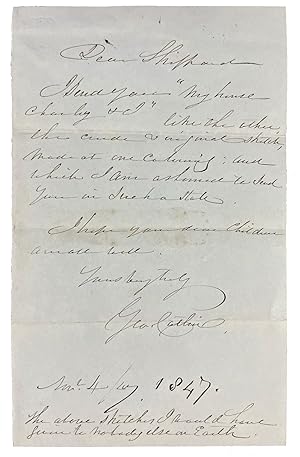 Dear Shippard
I send you "My horse
Charley & I" like the other,
the crude & original sketch,
made at one catering; and
which I am ashamed to send
you in such a state.
I hope you dear children
are all well.
Yours truly
Geo Catlin.
Nov. 4 1847.
The above sketches I would have
given to nobody else on Earth.